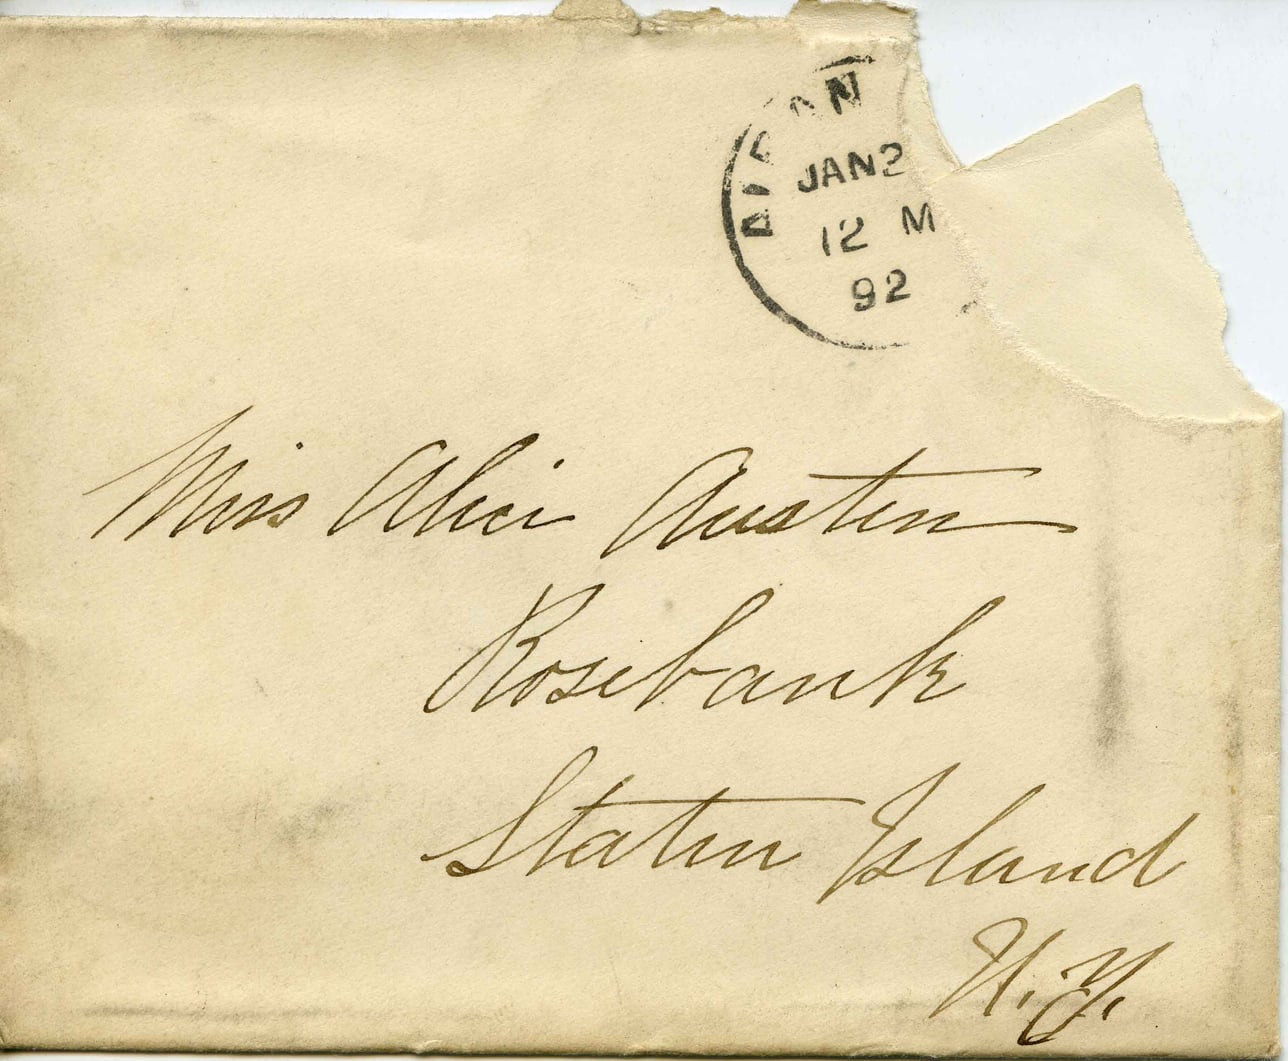 JAN 2
12 M
92
Miss Alice Austen
Rosebank
Staten Island
N. Y.